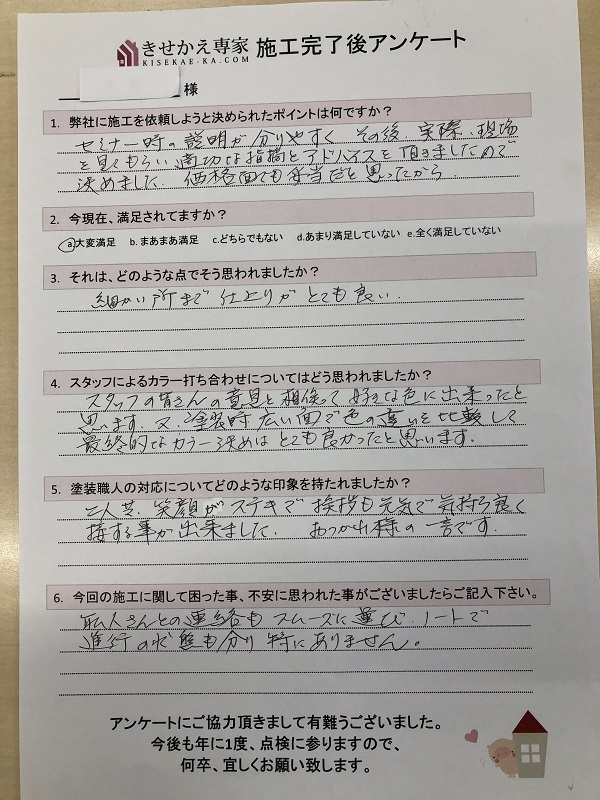 きせかえ専家
KISEKAE-KA.COM
施工完了後アンケート
様
1. 弊社に施工を依頼しようと決められたポイントは何ですか？
セミナー時の説明が分りやすく その後、実際、現場
を見てもらい適切な指摘とアドバイスを頂きましたので
決めました。価格面でも妥当だと思ったから。
2. 今現在、満足されてますか？
a.大変満足 b. まあまあ満足 c.どちらでもない d.あまり満足していない e.全く満足していない
3. それは、どのような点でそう思われましたか？
細かい所まで仕上りがとても良い。
4. スタッフによるカラー打ち合わせについてはどう思われましたか？
スタッフの皆さんの意見と相俟って好きな色に出来ったと
思います。又、塗装時広い面で色の違いを比較して
最終的なカラー決めはとても良かったと思います。
5. 塗装職人の対応についてどのような印象を持たれましたか？
二人共、笑顔がステキで挨拶も元気で気持ち良く
接する事が出来ました。 おつかれ様の一言です。
6. 今回の施工に関して困った事、不安に思われた事がございましたらご記入下さい。
職人さんとの連絡もスムーズに運び、ノートで
進行の状態も分り特にありません。
アンケートにご協力頂きまして有難うございました。
今後も年に1度、点検に参りますので、
何卒、宜しくお願い致します。